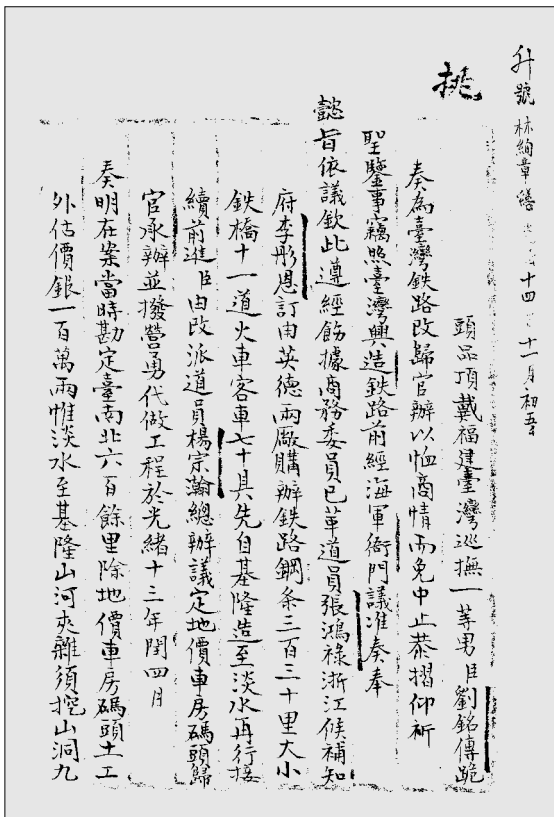 升號林絢章繕 十四 十一月初五
挑
頭品頂戴福建臺灣巡撫一等男臣劉銘傳跪
奏為臺灣鉄路改歸官辦以恤商情而免中止恭摺仰祈
聖鑒事竊照臺灣興造鉄路前經海軍衙門議准奏奉
懿旨依議欽此遵經飭據商務委員已革道員張鴻祿浙江候補知
府李彤恩訂由英德兩厰購辦鉄路鋼条三百三十里大小
鉄橋十一道火車客車七十具先自基隆造至淡水再行接
續前進臣由改派道員楊宗瀚總辦議定地價車房碼頭歸
官承辦並撥營勇代做工程於光緒十三年閏四月
奏明在案當時勘定臺南北六百餘里除地價車房碼頭土工
外估價銀一百萬兩惟淡水至基隆山河夾雜須挖山洞九